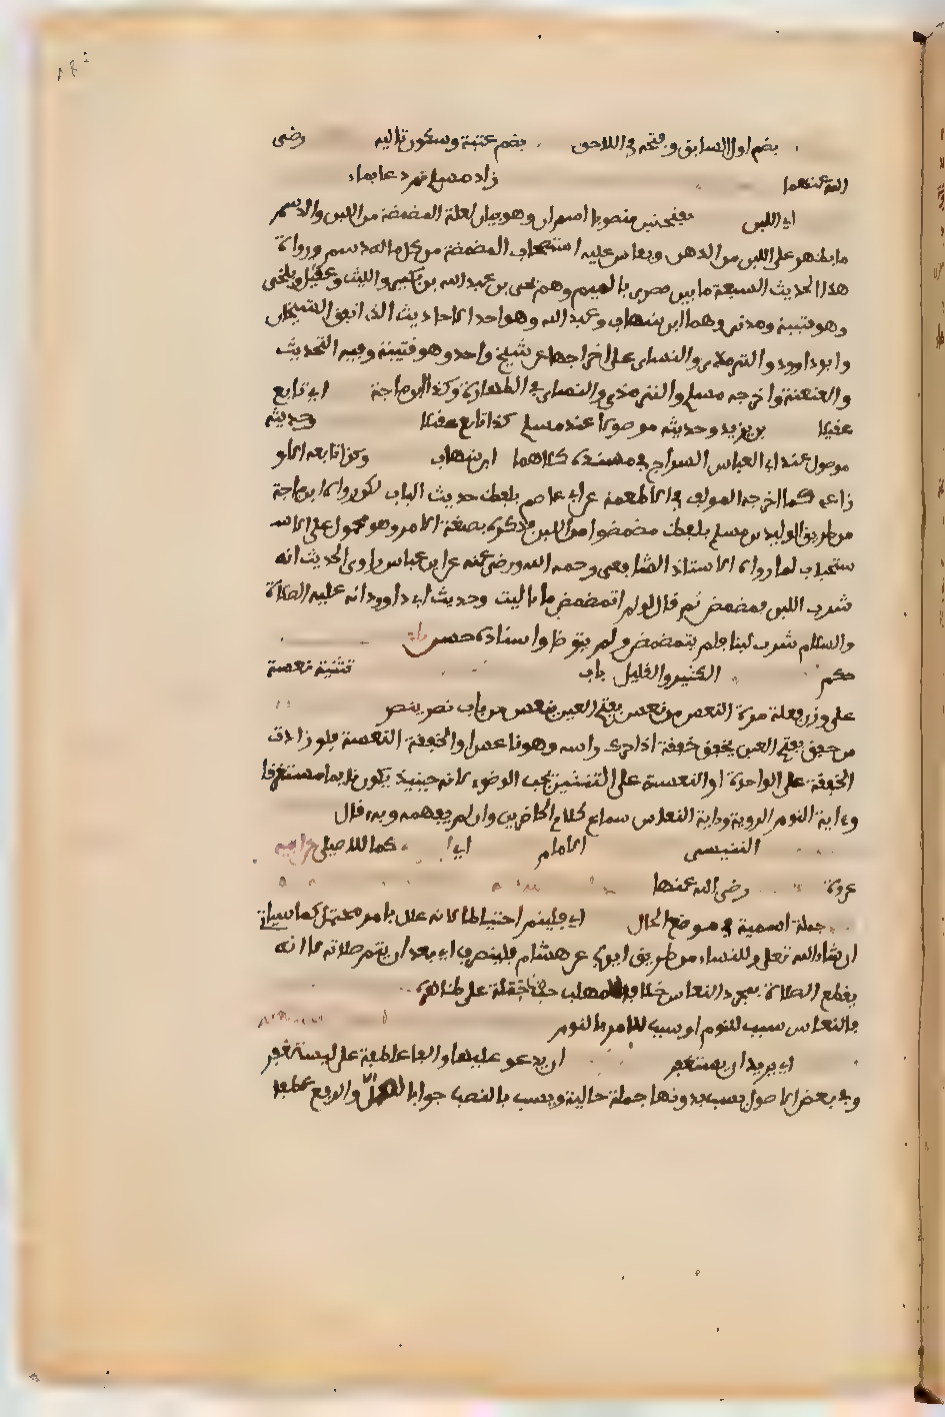 بضم اول السابق وفتحه في اللاحق بضم عتبة وسكون تاليه رضي
الله عنهما زاد مسلم ثم دعا بماء
اي اللبن بفتحتين منصوبا اسم ان وهو بيان لعلة المضمضة من اللبن والدسم
ما يظهر على اللبن من الدهن ويقاس عليه استحباب المضمضة من كل ما له دسم ورواة
هذا الحديث السبعة ما بين مصري بالميم وهم يحيى بن عبد الله بن بكير والليث وعقيل وبلخي
وهو قتيبة ومدني وهما ابن شهاب وعبيد الله وهو احد الاحاديث التي اتفق الشيخان
وابو داوود والترمذي والنساي على اخراجها عن شيخ واحد وهو قتيبة وفيه التحديث
والعنعنة واخرجه مسلم والترمذي والنساي في الطهارة وكذا ابن ماجة اي تابع
عقيلا بن يزيد وحديثه موصولا عند مسلم كذا تابع عقيلا وحديثه
موصول عند ابي العباس السراج في مسنده كلاهما ابن شهاب وكذا تابعه الاو
زاعي كما اخرجه المولف في الاطعمة عن ابي عاصم بلفظ حديث الباب لكن رواه ابن ماجة
من طريق الوليد بن مسلم بلفظ مضمضوا من اللبن فذكره بصيغة الامر وهو محمول على الا
ستحباب لما رواه الاستاذ الشافعي رحمه الله ورضي عنه عن ابن عباس راوي الحديث انه
شرب اللبن فمضمض ثم قال لو لم اتمضمض ما باليت وحديث ابي داوود انه عليه الصلاة
والسلام شرب لبنا فلم يتمضمض ولم يتوضا واسناده حسن باب
حكم الكثير والقليل باب تثنية نعسة
على وزن فعلة مرة من النعس من نعس بفتح العين ينعس من باب نصر ينصر
من خفق بفتح العين يخفق خفقة اذا حرك راسه وهو ناعس او الخفقة النعسة فلو زادت
الخفقة على الواحدة او النعسة على الثنتين يجب الوضوء لانه حينئذ يكون نايما مستغرقا
وءاية النوم الروية وءاية النعاس سماع كلام الحاضرين وان لم يفهمه وبه قال
التنيسي الامام اي كما للاصيلي
عروة رضي الله عنها
جملة اسمية في موضع الحال اي فلينم احتياطا لانه علل بامر محتمل كما سياتي
ان شاء الله تعلى وللنساء من طريق ايوب عن هشام فلينصرف اي بعد ان يتم صلاته لا انه
يقطع الصلاة بمجرد النعاس خلافا للمهلب حيث حمله على ظاهره
فالنعاس سبب للنوم او سبب للامر بالنوم
اي يريد ان يستغفر ان يدعو عليها والفاء عاطفة على يستغفر
وفي بعض الاصول يسب بدونها جملة حالية ويسب بالنصب جوابا والرفع عطفا